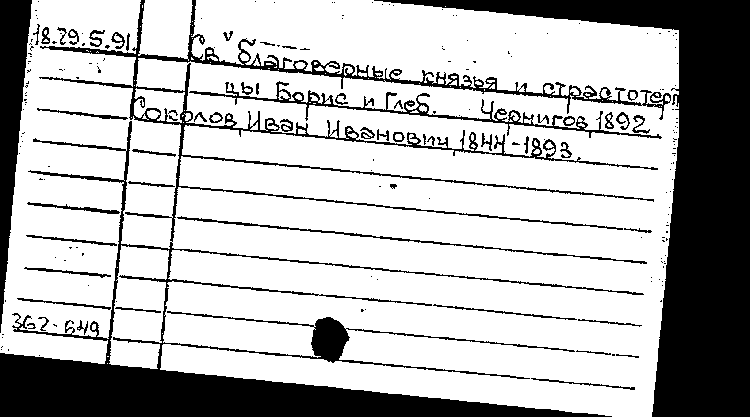 18.29.5.91.
Св. благоверные князья и страстотерп
цы Борис и Глеб. Чернигов, 1892.
Соколов, Иван Иванович, 1844-1893.
362-549